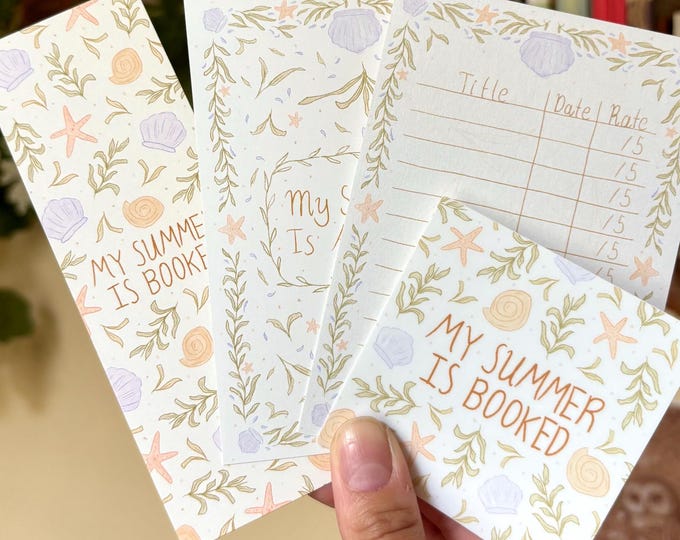 MY SUMMER
IS BOOKED
My S
Is
Title Date Rate
/5
/5
/5
/5
/5
MY SUMMER
IS BOOKED